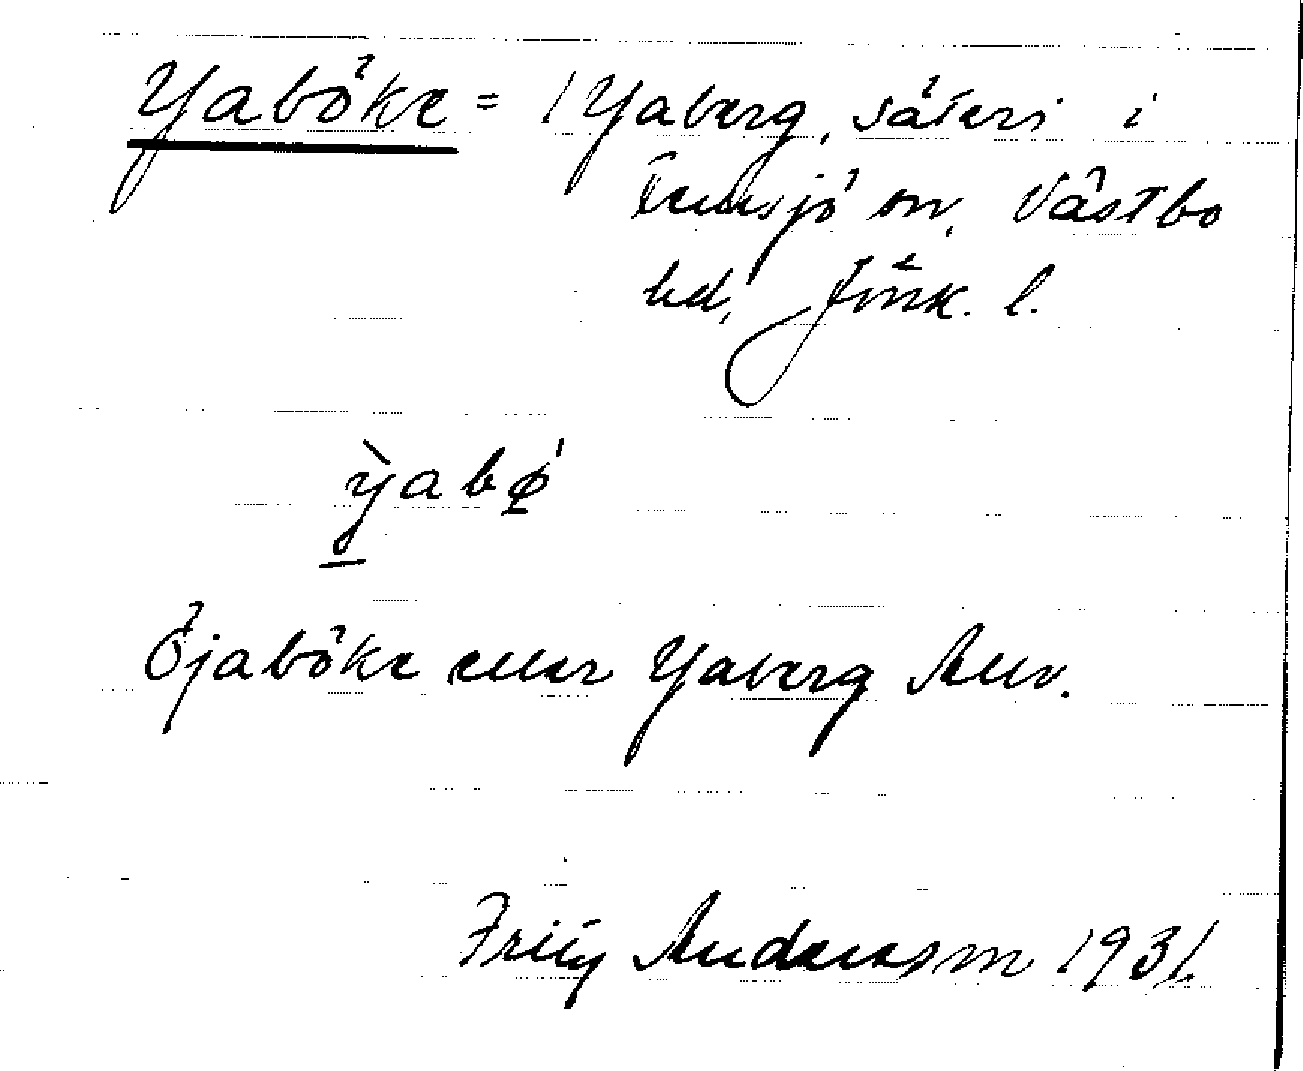 Yaböke = / Yaberg, säteri i
Femsjö sn, Västbo
hd, Jönk. l.
ỳabǿ̣
Öjaböke eller Yaberg Allm.
Fritz Andersson 1931.